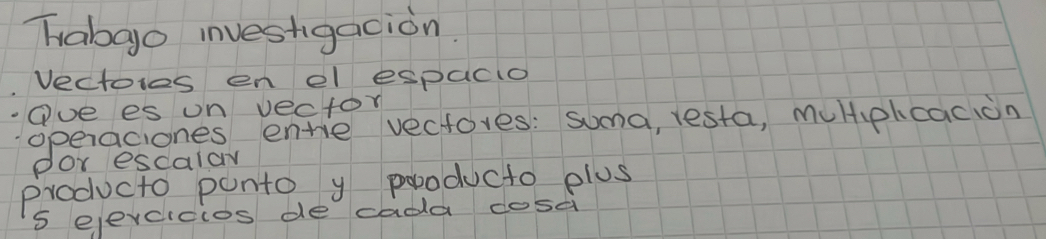 Trabajo investigación.
. Vectores en el espacio
. Que es un vector
. operaciones entre vectores: suma, resta, multiplicación
por escalar
producto punto y producto plus
5 ejercicios de cada cosa